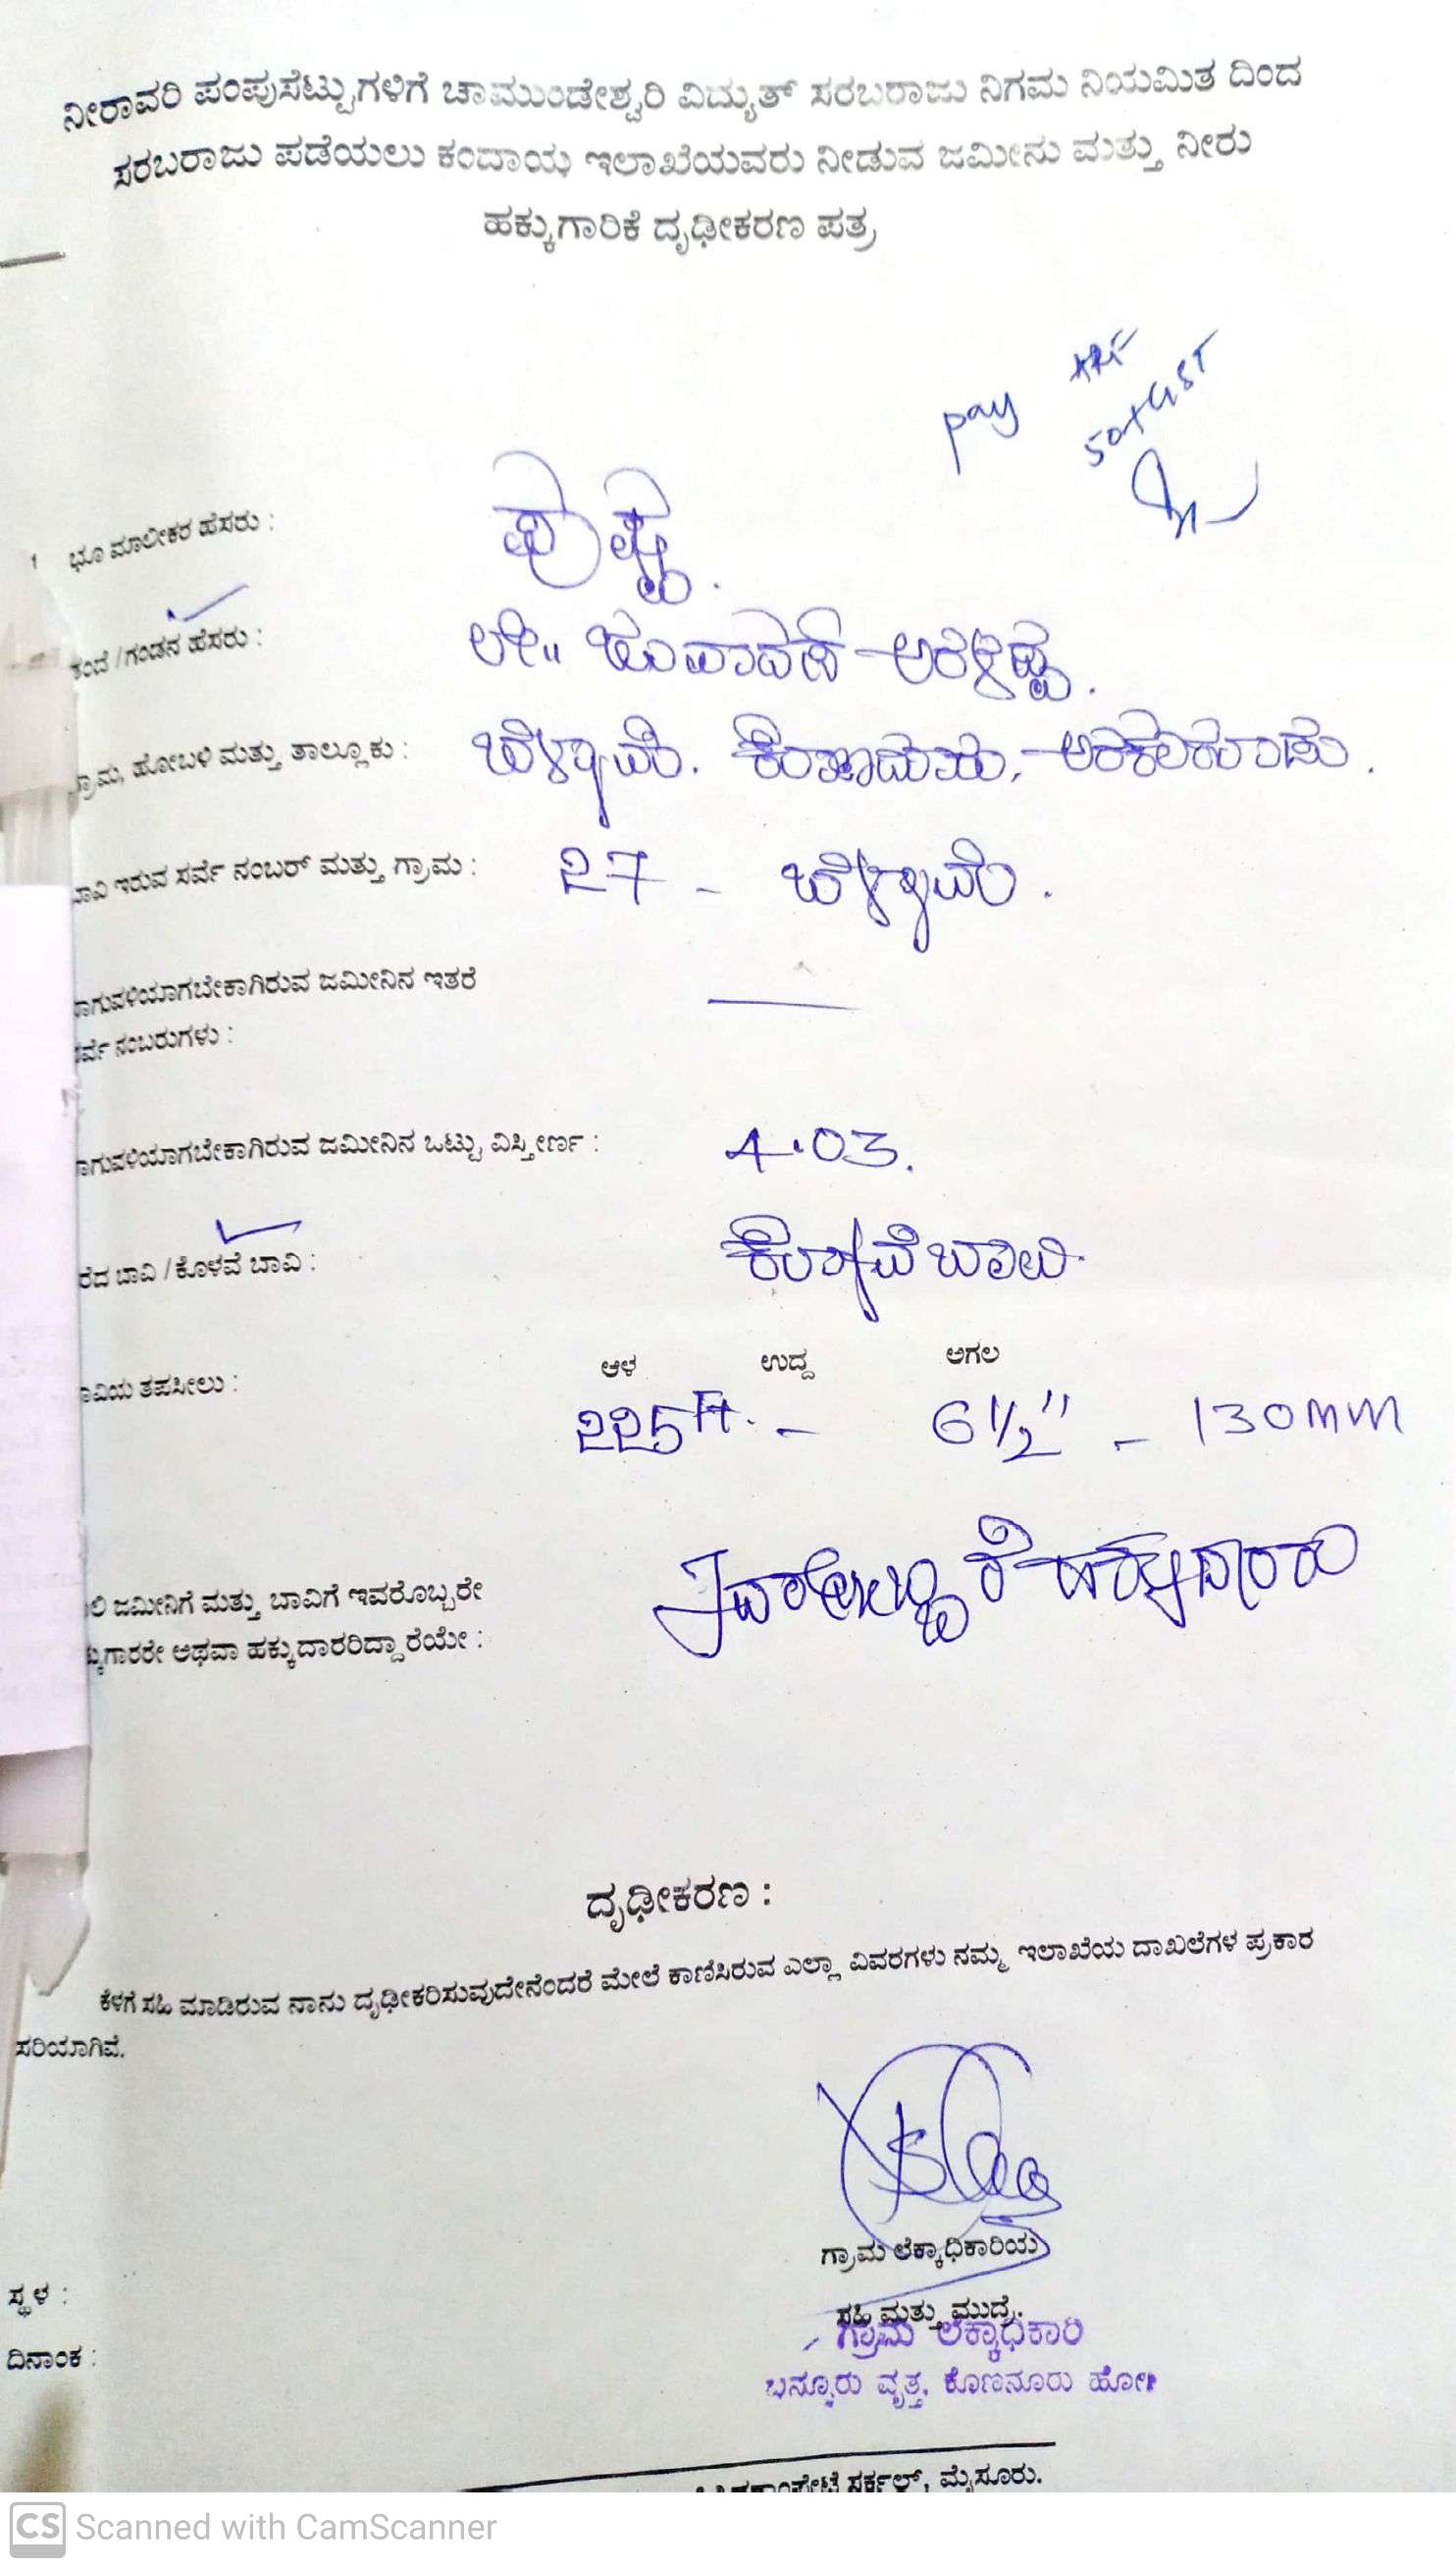 ನೀರಾವರಿ ಪಂಪುಸೆಟ್ಟುಗಳಿಗೆ ಚಾಮುಂಡೇಶ್ವರಿ ವಿದ್ಯುತ್ ಸರಬರಾಜು ನಿಗಮ ನಿಯಮಿತ ದಿಂದ
ಸರಬರಾಜು ಪಡೆಯಲು ಕಂದಾಯ ಇಲಾಖೆಯವರು ನೀಡುವ ಜಮೀನು ಮತ್ತು ನೀರು
ಹಕ್ಕುಗಾರಿಕೆ ದೃಢೀಕರಣ ಪತ್ರ
pay ARF
50+GST
1 ಭೂ ಮಾಲೀಕರ ಹೆಸರು : ಪುಷ್ಪ.
ತಂದೆ /ಗಂಡನ ಹೆಸರು : ಲೇ॥
ಗ್ರಾಮ, ಹೋಬಳಿ ಮತ್ತು ತಾಲ್ಲೂಕು : ಅರಕಲಗೂಡು.
ಬಾವಿ ಇರುವ ಸರ್ವೆ ನಂಬರ್ ಮತ್ತು ಗ್ರಾಮ : 27 -
ಸಾಗುವಳಿಯಾಗಬೇಕಾಗಿರುವ ಜಮೀನಿನ ಇತರೆ
ಸರ್ವೆ ನಂಬರುಗಳು :
ಸಾಗುವಳಿಯಾಗಬೇಕಾಗಿರುವ ಜಮೀನಿನ ಒಟ್ಟು ವಿಸ್ತೀರ್ಣ : 4.03.
ರೆದ ಬಾವಿ / ಕೊಳವೆ ಬಾವಿ : ಕೊಳವೆ ಬಾವಿ.
ಆಳ ಉದ್ದ ಅಗಲ
ಬಾವಿಯ ತಪಸೀಲು :
225 Ft. - 6 1/2" - 130mm
ಲಿ ಜಮೀನಿಗೆ ಮತ್ತು ಬಾವಿಗೆ ಇವರೊಬ್ಬರೇ
ಕ್ಕುಗಾರರೇ ಅಥವಾ ಹಕ್ಕುದಾರರಿದ್ದಾರೆಯೇ : ಇವರೊಬ್ಬರೆ ಹಕ್ಕುದಾರರು
ದೃಢೀಕರಣ :
ಕೆಳಗೆ ಸಹಿ ಮಾಡಿರುವ ನಾನು ದೃಢೀಕರಿಸುವುದೇನೆಂದರೆ ಮೇಲೆ ಕಾಣಿಸಿರುವ ಎಲ್ಲಾ ವಿವರಗಳು ನಮ್ಮ ಇಲಾಖೆಯ ದಾಖಲೆಗಳ ಪ್ರಕಾರ
ಸರಿಯಾಗಿವೆ.
ಗ್ರಾಮ ಲೆಕ್ಕಾಧಿಕಾರಿಯ
ಸ್ಥಳ :
ಸಹಿ ಮತ್ತು ಮುದ್ರೆ.
ಗ್ರಾಮ ಲೆಕ್ಕಾಧಿಕಾರಿ
ದಿನಾಂಕ :
ಬನ್ನೂರು ವೃತ್ತ, ಕೊಣನೂರು ಹೋ॥
ಸರ್ಕಲ್, ಮೈಸೂರು.
CS Scanned with CamScanner